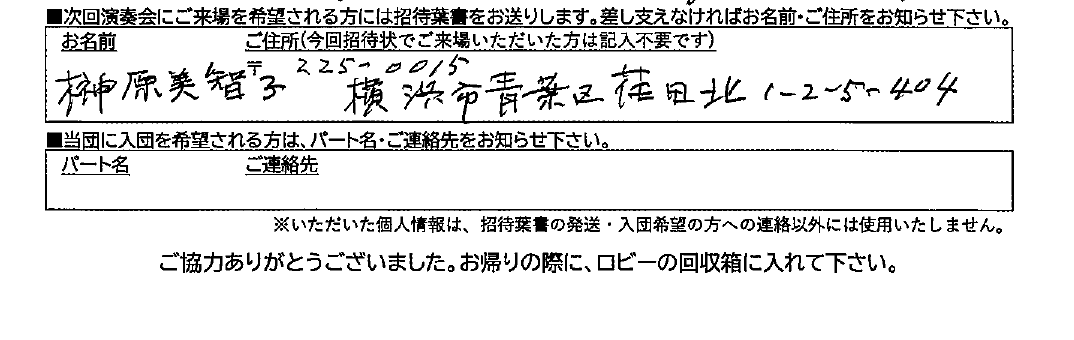 ■次回演奏会にご来場を希望される方には招待葉書をお送りします。差し支えなければお名前・ご住所をお知らせ下さい。
お名前 ご住所(今回招待状でご来場いただいた方は記入不要です)
榊原美智子 〒225-0015 横浜市青葉区荏田北1-2-5-404
■当団に入団を希望される方は、パート名・ご連絡先をお知らせ下さい。
パート名 ご連絡先
※いただいた個人情報は、招待葉書の発送・入団希望の方への連絡以外には使用いたしません。
ご協力ありがとうございました。お帰りの際に、ロビーの回収箱に入れて下さい。